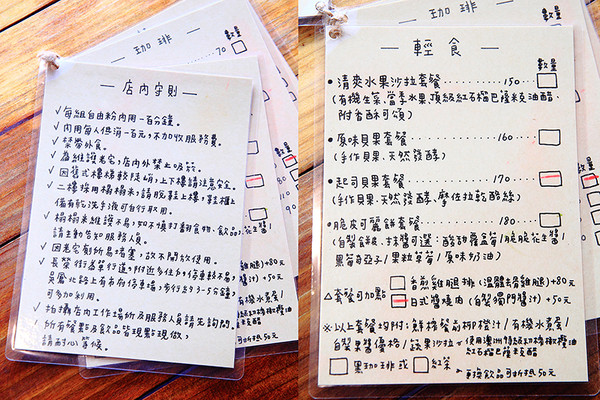 珈琲
數量
店內守則
✓每組自由粉內用一百分鐘。
✓內用每人低消一百元,不加收服務費。
✓禁帶外食。
✓為維護老宅,店內外禁止吸菸。
✓因舊式樓梯較陡峭,上下樓請注意安全。
✓二樓採用榻榻米,請脫鞋上樓,鞋櫃上
備有乾洗手液可自行取用。
✓榻榻米維護不易,如不慎打翻食物、飲品,
請主動告知服務人員。
✓因老宅廁所易堵塞,故不開放使用。
✓長榮街為單行道,附近多紅力付停車較不易,
吳鳳北路上有市府停車場,步行約3-5分鐘,
可多加利用。
✓拍攝店內工作場所及服務人員請先詢問。
✓所有餐點及飲品皆現點現做,
請耐心等候。
珈琲
數量
輕食
數量
•清爽水果沙拉套餐 150
(有機生菜、當季水果、頂級紅石榴巴薩米克油醋、
附香酥可頌)
•原味貝果套餐 160
(手作貝果、天然發酵)
•起司貝果套餐 170
(手作貝果、天然發酵、摩佐拉乾酪絲)
•脆皮可麗餅套餐 180
(自製餅皮、抹醬可選:酸甜覆盆莓/脆脆花生醬/
黑莓奇亞子/黑粒草莓/原味奶油)
△套餐可加點
香煎雞腿排(溫體去骨雞腿)+80元
日式醬燒肉(自製獨門醬汁)+50元
※以上套餐均附:鮮榨餐前柳橙汁/有機水煮蛋/
自製果醬優格/蔬果沙拉→使用澳洲特級初榨橄欖油
紅石榴巴薩米克醋
黑咖啡或 紅茶 →更換飲品可折抵50元